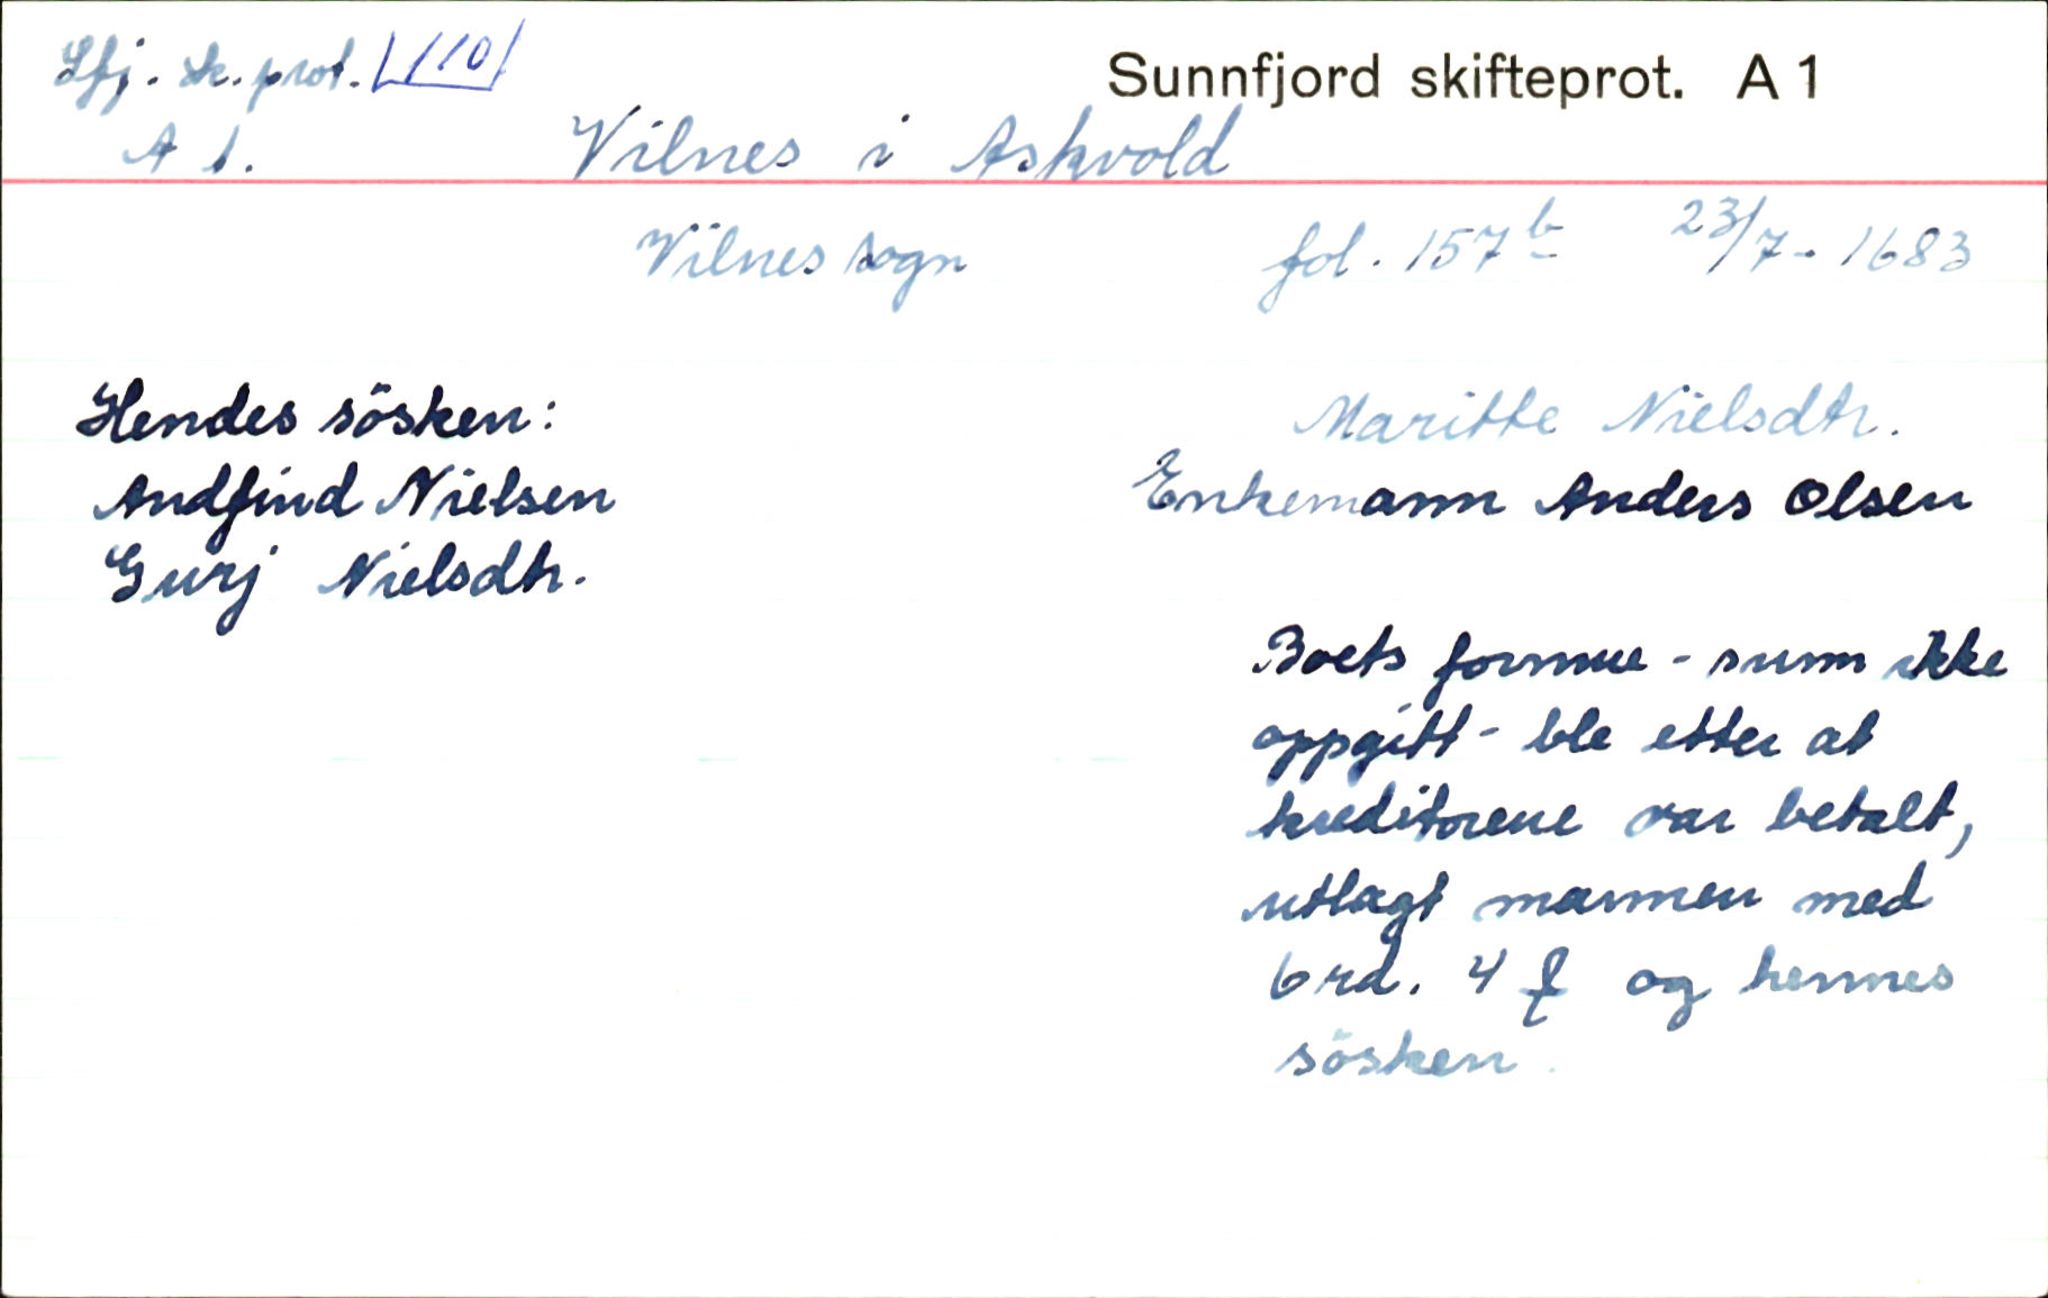 Sfj. sk. prot. 110
Sunnfjord skifteprot. A 1
A 1. Vilnes i Askvold
Vilnes sogn fol. 157 b 23/7 - 1683
Hendes sösken:
Andfind Nielsen
Gurj Nielsdtr.
Maritte Nielsdtr.
Enkemann Anders Olsen
Boets formue - sum ikke
oppgitt - ble etter at
kreditorene var betalt,
utlagt mannen med
6 rd. 4 ₰ og hennes
sösken.